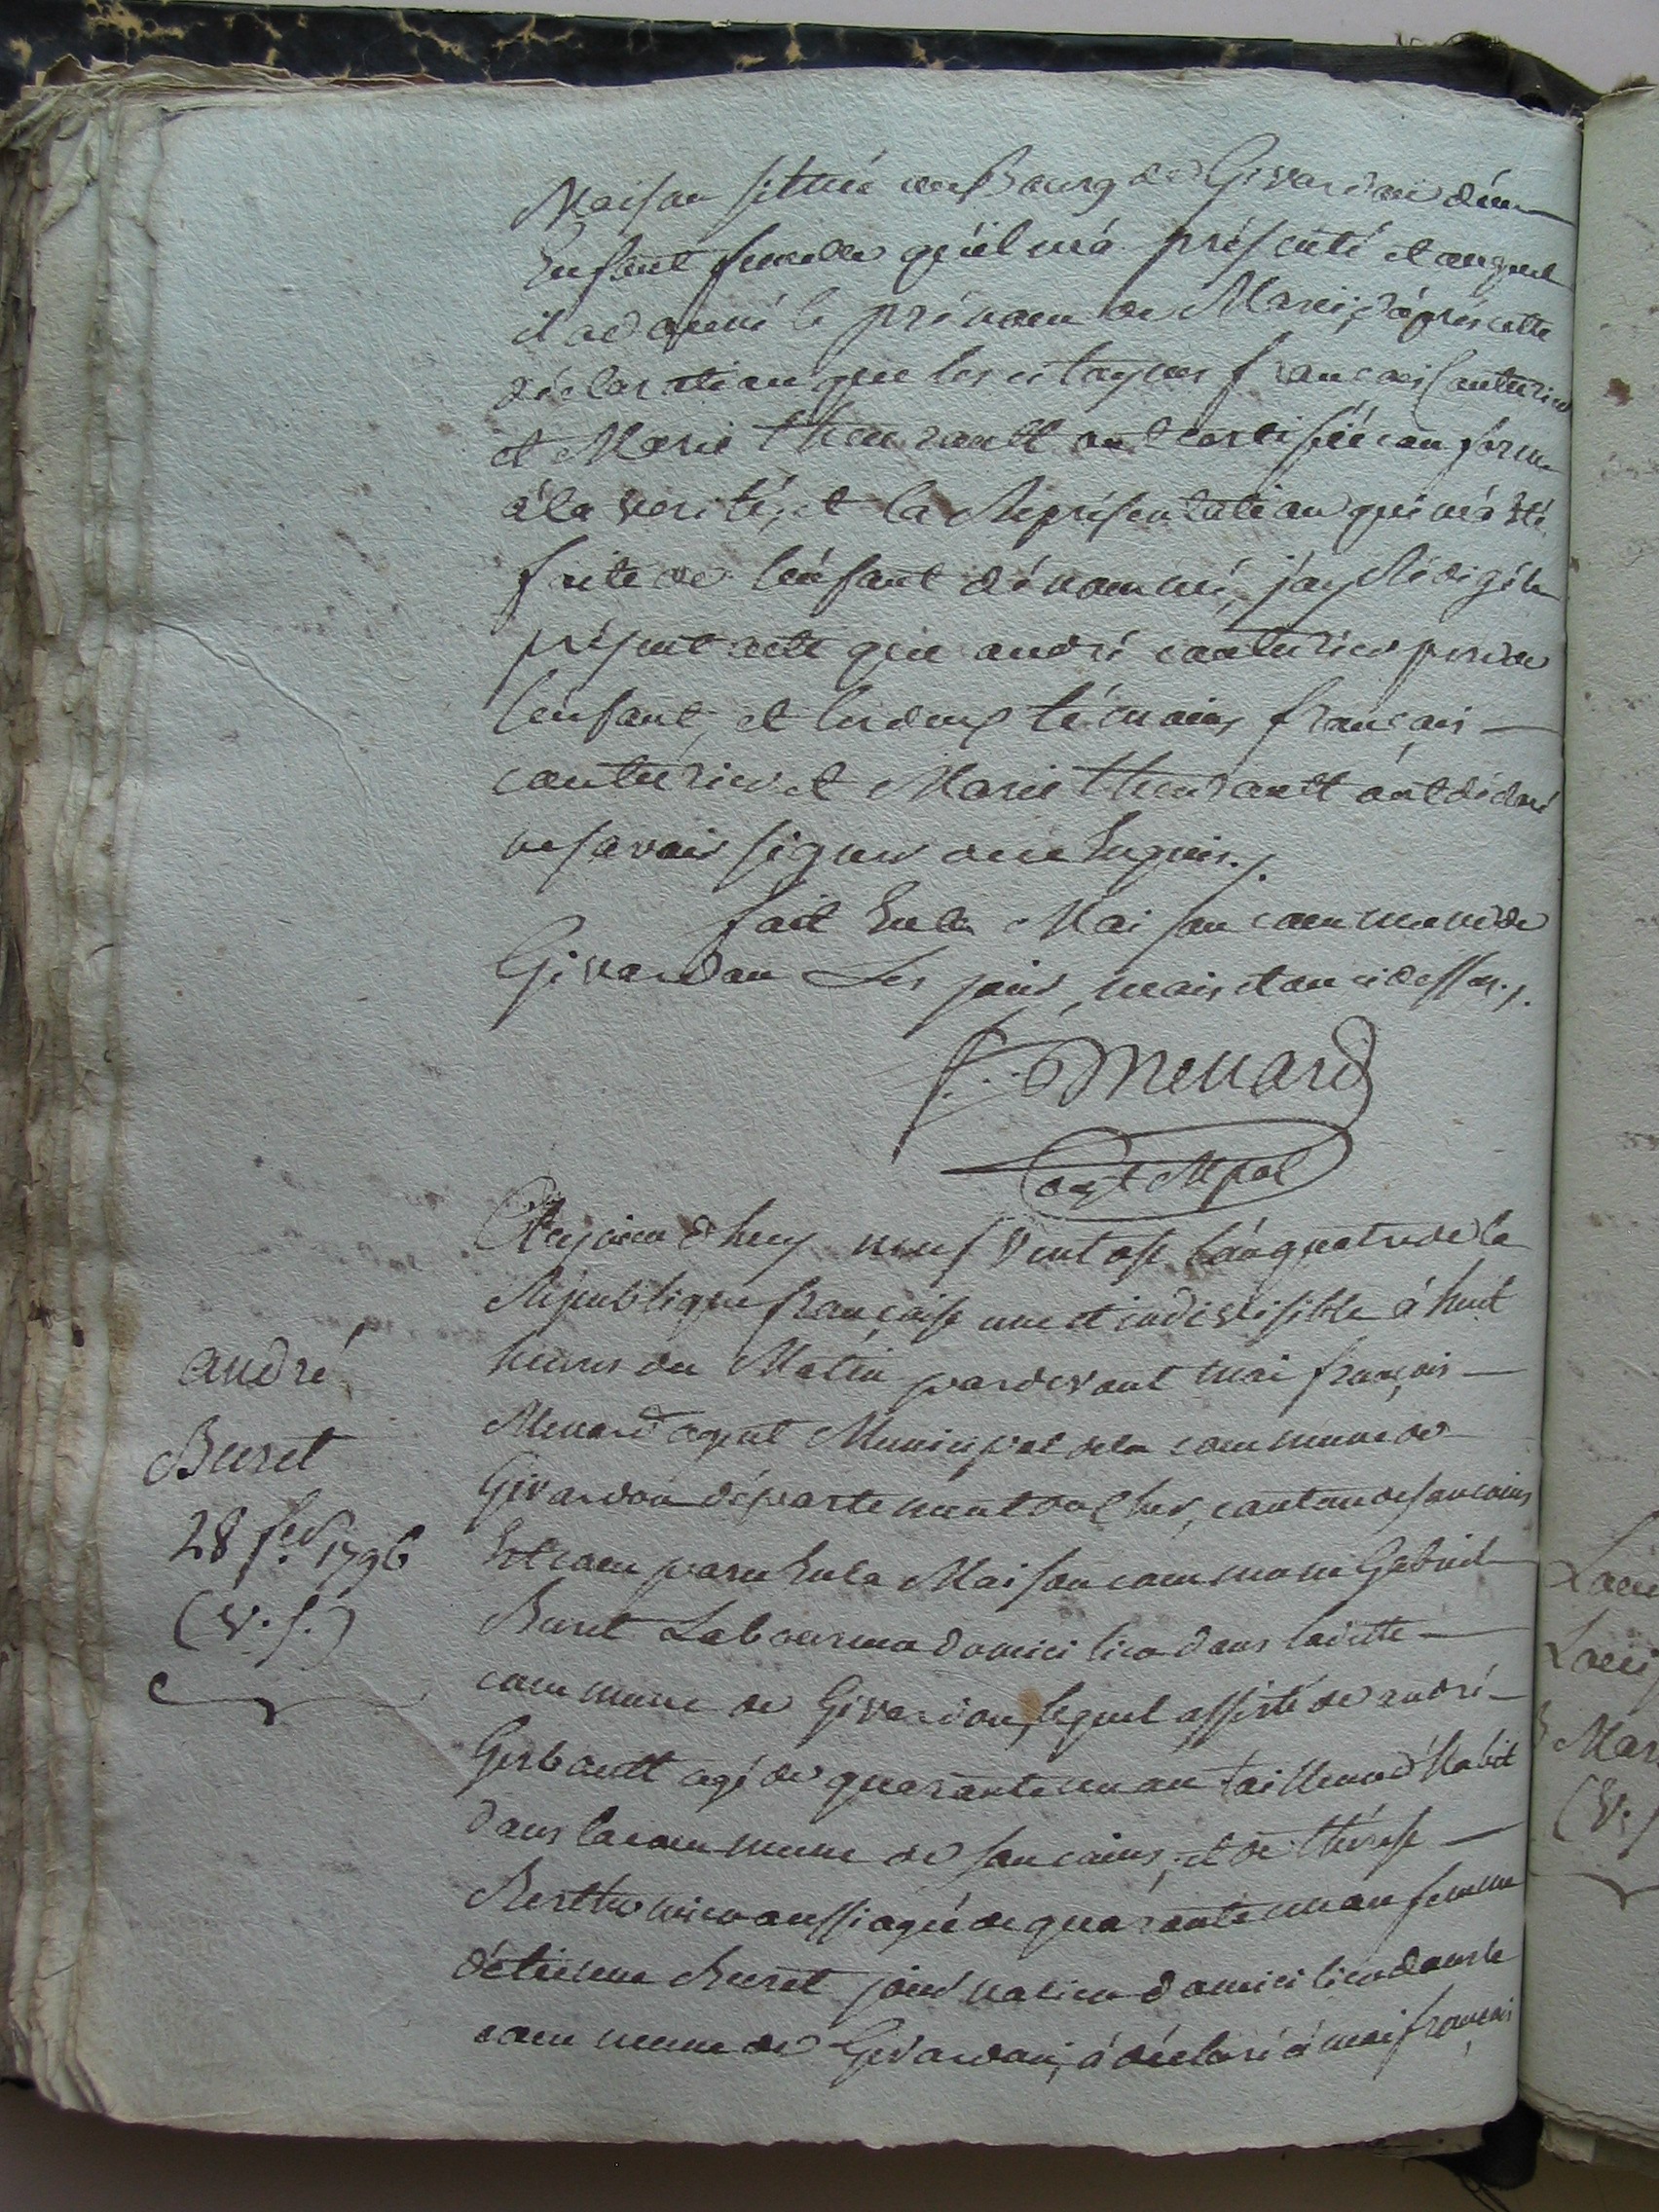 Maison située au Bourg de Givardon d'un
Enfant femelle qu'il m'a présenté et auquel
il a donné le prénom de Marie, d'après cette
déclaration que les citoyens francois Couturier
et Marie theurault ont certifiée conforme
à la verité, et la Représentation qui m'a Eté
faite de l'enfant dénommé, j'ay Rédigé le
présent acte que andré couturier pere de
l'enfant, et les deux témoins francois
couturier et Marie theurault ont déclaré
ne savoir signer de ce Enquis./.
fait En la Maison commune de
Givardon Les jour, mois et an ci dessus./.
f. Menard
agt Mpal
Aujourd'huy neuf Ventose l'an quatre de la
République française une et indivisible à huit
heures du Matin pardevant moi françois
Menard agent Municipal de la commune de
Givardon département du Cher, canton de Sancoins
Est comparu En la Maison commune Gabriel
Buret Laboureur domicilié dans la ditte
commune de Givardon, lequel assisté de andré
Gerbault agé de quarante un an tailleur d'Habit
dans la commune de Sancoins, et de thérèse
Berthomier aussi agée de quarante un an femme
d'étienne Buret journalier domicilié dans la
commune de Givardon, à déclaré à moi françois
andré
Buret
28 fer. 1796
(V. S.)
Mar
(V. S